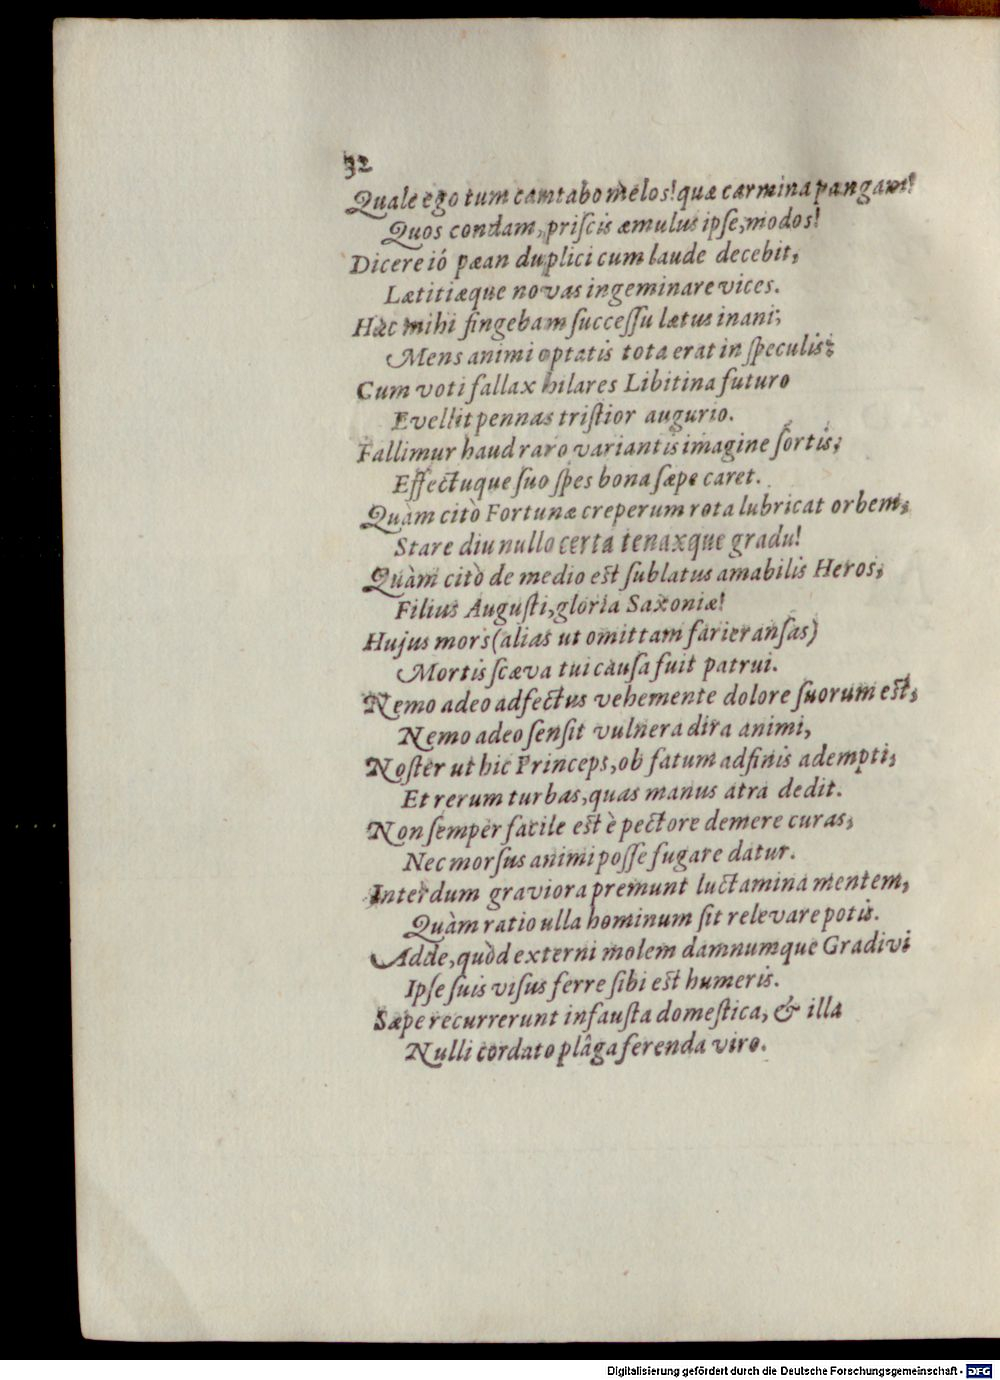 32
Quale ego tum camtabo melos! quæ carmina pangam!
Quos condam, priſcis æmulus ipſe, modos!
Dicere ió pæan duplici cum laude decebit,
Lætitiæque novas ingeminare vices.
Hæc mihi fingebam ſucceſſu lætus inani;
Mens animi optatis tota erat in ſpeculis:
Cum voti fallax hilares Libitina futuro
Evellit pennas triſtior augurio.
Fallimur haud raro variantis imagine ſortis;
Effectuque ſuo ſpes bona ſæpe caret.
Quàm citò Fortunæ creperum rota lubricat orbem,
Stare diu nullo certa tenaxque gradu!
Quàm citò de medio est ſublatus amabilis Heros,
Filius Auguſti, gloria Saxoniæ!
Hujus mors (alias ut omittam farier anſas)
Mortis ſcæva tui cauſa fuit patrui.
Nemo adeo adfectus vehemente dolore ſuorum est,
Nemo adeo ſenſit vulnera dira animi,
Noſter ut hic Princeps, ob fatum adfinis adempti,
Et rerum turbas, quas manus atra dedit.
Non ſemper facile est è pectore demere curas,
Nec morſus animi poſſe fugare datur.
Interdum graviora premunt luctamina mentem,
Quàm ratio ulla hominum ſit relevare potis.
Adde, quòd externi molem damnumque Gradivi
Ipſe ſuis viſus ferre ſibi est humeris.
Sæpe recurrerunt infauſta domeſtica, & illa
Nulli cordato plâga ferenda viro.
Digitalisierung gefördert durch die Deutsche Forschungsgemeinschaft - DFG